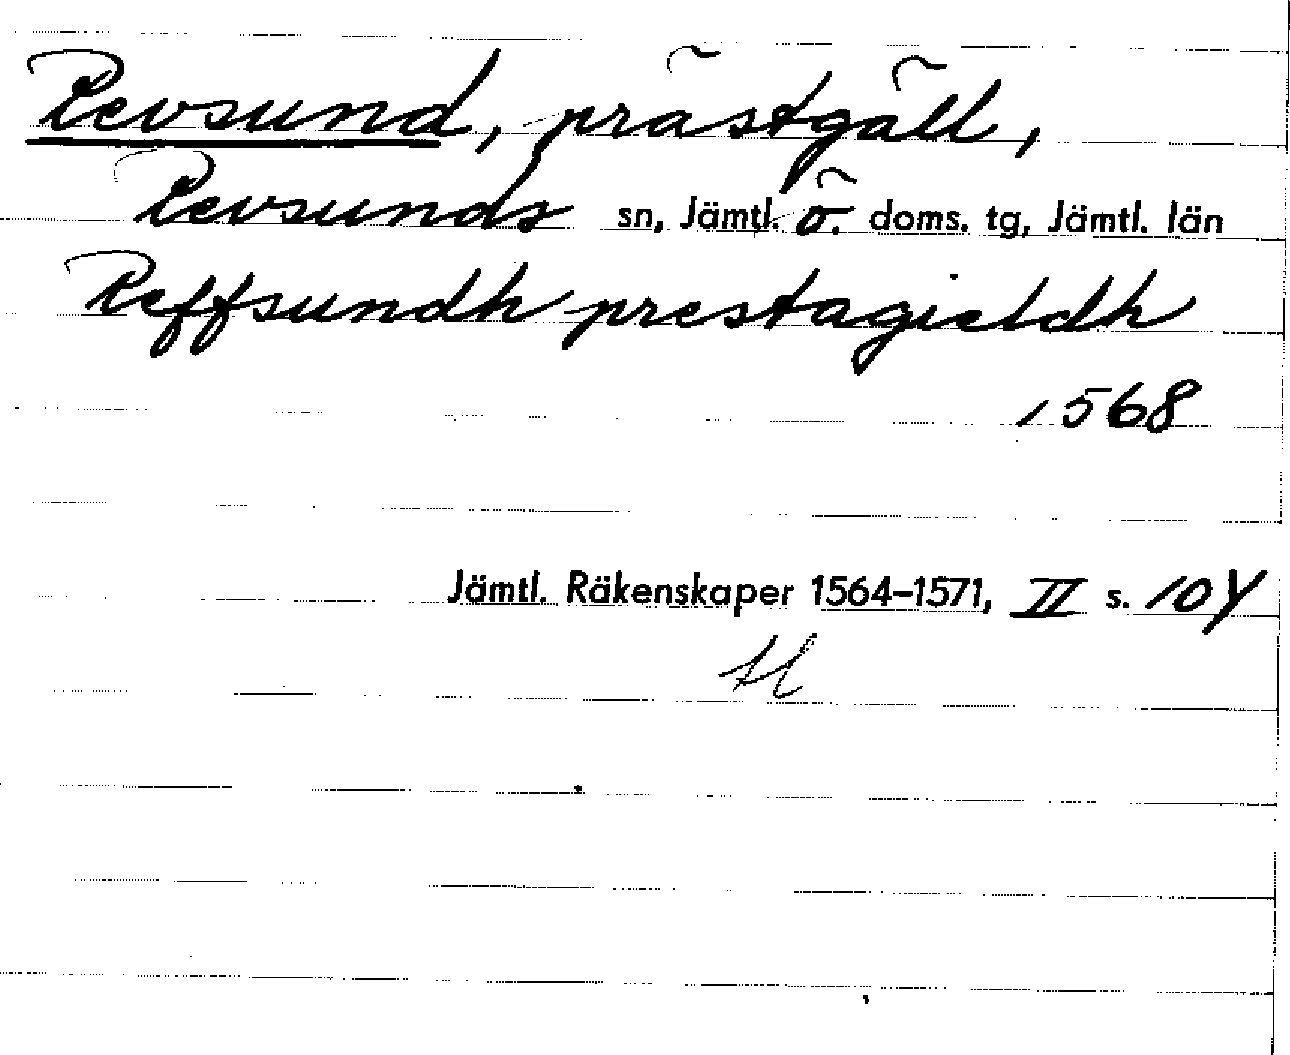 Revsund, prästgäll,
Revsunds sn, Jämtl. ö. doms. tg, Jämtl. län
Reffsundh prestagieldh
1568
Jämtl. Räkenskaper 1564–1571, II s. 104